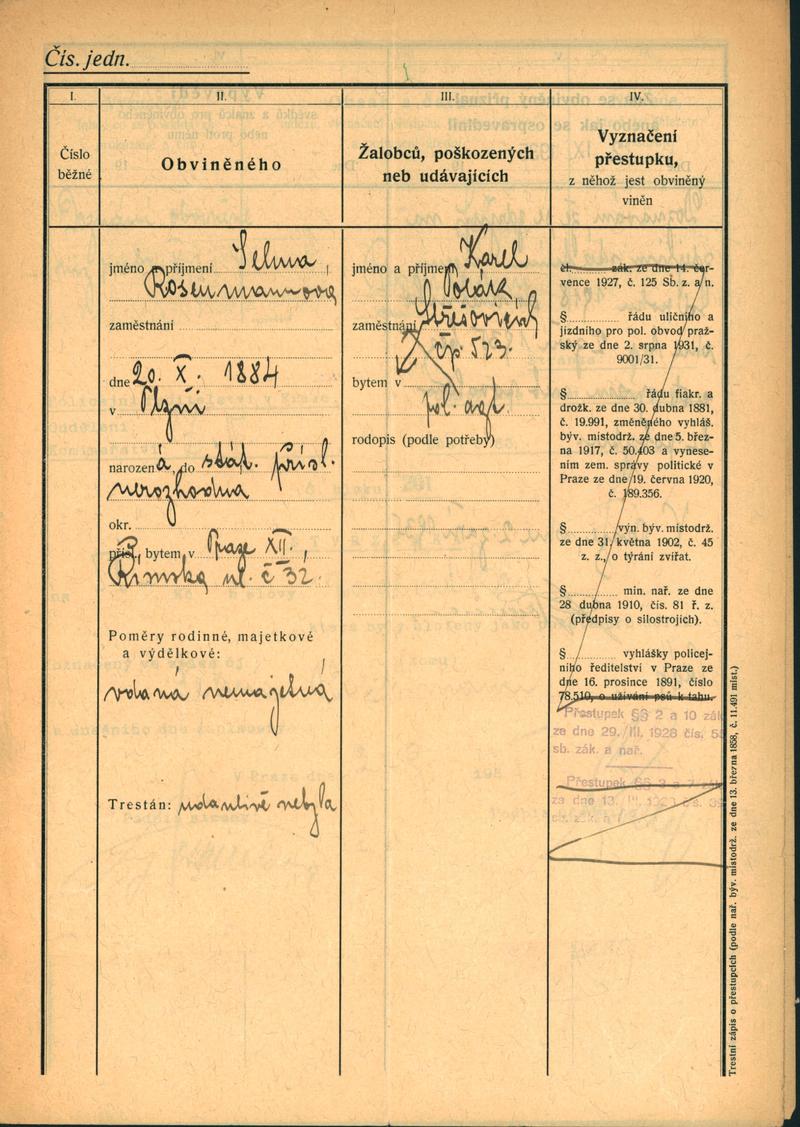 Čís. jedn.
I.
II.
III.
IV.
Číslo
běžné
Obviněného
Žalobců, poškozených
neb udávajících
Vyznačení
přestupku,
z něhož jest obviněný
viněn
jméno a příjmení Selma
Rosenmannova
zaměstnání
dne 20. X. 1884
v Plzni
narozená, do stát. přísl.
nerozhodna
okr.
přísl., bytem v Praze XII.,
Římská ul. č 32.
Poměry rodinné, majetkové
a výdělkové:
vdaná nemajetná
Trestán: udanlivě nebyla
jméno a příjmení Karel
Polák
zaměstnání Střešovicích
čp. 523.
bytem v
pol. agt.
rodopis (podle potřeby)
čl. zák. ze dne 14. čer-
vence 1927, č. 125 Sb. z. a n.
§ řádu uličního a
jízdního pro pol. obvod praž-
ský ze dne 2. srpna 1931, č.
9001/31.
§ řádu fiakr. a
drožk. ze dne 30. dubna 1881,
č. 19.991, změněného vyhláš.
býv. místodrž. ze dne 5. břez-
na 1917, č. 50.403 a vynese-
ním zem. správy politické v
Praze ze dne 19. června 1920,
č. 189.356.
§ výn. býv. místodrž.
ze dne 31. května 1902, č. 45
z. z., o týrání zvířat.
§ min. nař. ze dne
28 dubna 1910, čís. 81 ř. z.
(předpisy o silostrojích).
§ vyhlášky policej-
ního ředitelství v Praze ze
dne 16. prosince 1891, číslo
78.510, o užívání psů k tahu.
Přestupek §§ 2 a 10 zák
ze dne 29. III. 1928 čís. 55
sb. zák. a nař.
Přestupek §§ 3 a 7 zák
ze dne 13. III.
Trestní zápis o přestupcích (podle nař. býv. místodrž. ze dne 13. března 1858, č. 11.491 míst.)